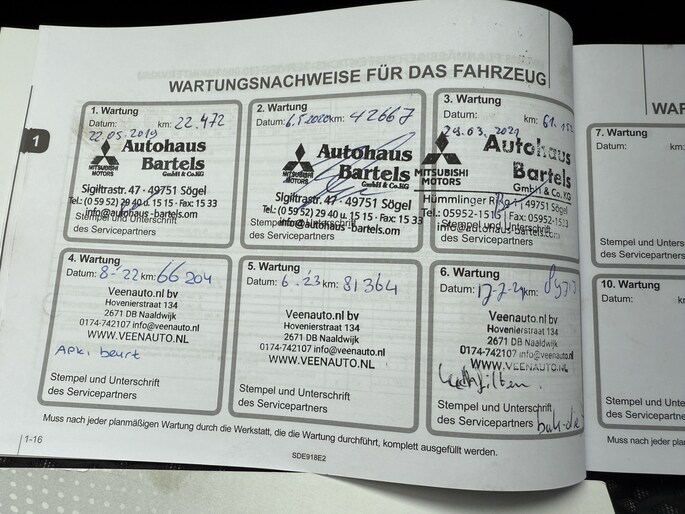 WARTUNGSNACHWEISE FÜR DAS FAHRZEUG
1
1. Wartung
Datum: km: 22.472
22.05.2019
MITSUBISHI MOTORS
Autohaus
Bartels
GmbH & Co.KG
Sigiltrastr. 47 · 49751 Sögel
Tel.: (0 59 52) 29 40 u. 15 15 · Fax: 15 33
info@autohaus-bartels.com
Stempel und Unterschrift
des Servicepartners
2. Wartung
Datum: 6.5.2020 km: 42667
MITSUBISHI MOTORS
Autohaus
Bartels
GmbH & Co.KG
Sigiltrastr. 47 · 49751 Sögel
Tel.: (0 59 52) 29 40 u. 15 15 · Fax: 15 33
info@autohaus-bartels.com
Stempel und Unterschrift
des Servicepartners
3. Wartung
Datum: km: 61.
29.03.2021
MITSUBISHI
MOTORS
Autohaus
Bartels
GmbH & Co. KG
Hümmlinger 49751 Sögel
Tel.: 05952-1515 | Fax: 05952-
info@autohaus-bartels.com
Stempel und Unterschrift
des Servicepartners
4. Wartung
Datum: 8-'22 km: 66204
Veenauto.nl bv
Hovenierstraat 134
2671 DB Naaldwijk
0174-742107 info@veenauto.nl
WWW.VEENAUTO.NL
APK, beurt
Stempel und Unterschrift
des Servicepartners
5. Wartung
Datum: 6.'23 km: 81364
Veenauto.nl bv
Hovenierstraat 134
2671 DB Naaldwijk
0174-742107 info@veenauto.nl
WWW.VEENAUTO.NL
Stempel und Unterschrift
des Servicepartners
6. Wartung
Datum: km:
Veenauto.nl bv
Hovenierstraat 134
2671 DB Naaldwijk
0174-742107 info@veenauto.nl
WWW.VEENAUTO.NL
Stempel und Unterschrift
des Servicepartners
Muss nach jeder planmäßigen Wartung durch die Werkstatt, die die Wartung durchführt, komplett ausgefüllt werden.
1-16
SDE918E2
WAR
7. Wartung
Datum:
Stempel und Unters
des Servicepartner
10. Wartung
Datum:
Stempel und Unter
des Servicepartne
Muss nach jeder plan